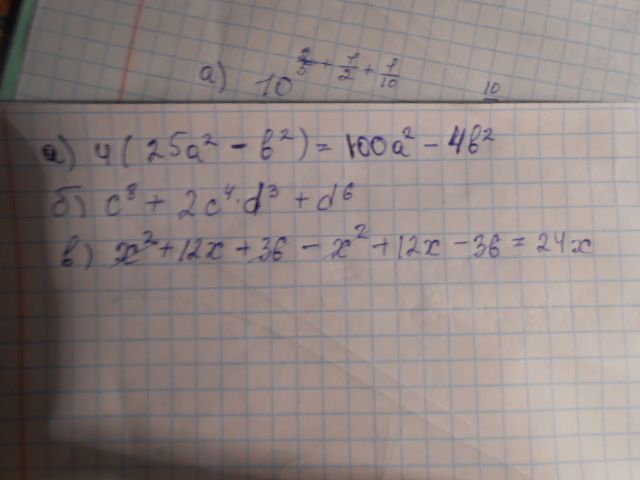 а) 10^(2/5 + 1/2 + 1/10)
10
а) 4(25a² - b²) = 100a² - 4b²
б) c⁸ + 2c⁴·d³ + d⁶
в) x² + 12x + 36 - x² + 12x - 36 = 24x